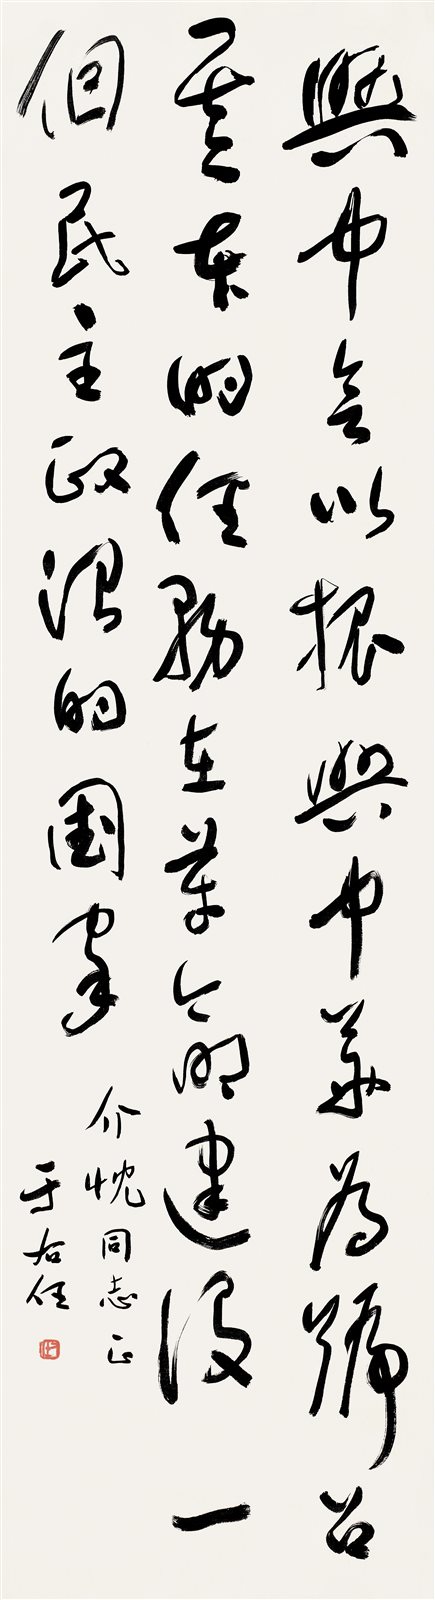 興中會以振興中華為號召
基本的任務在革命建設一
個民主政治的國家
介忱同志正
于右任